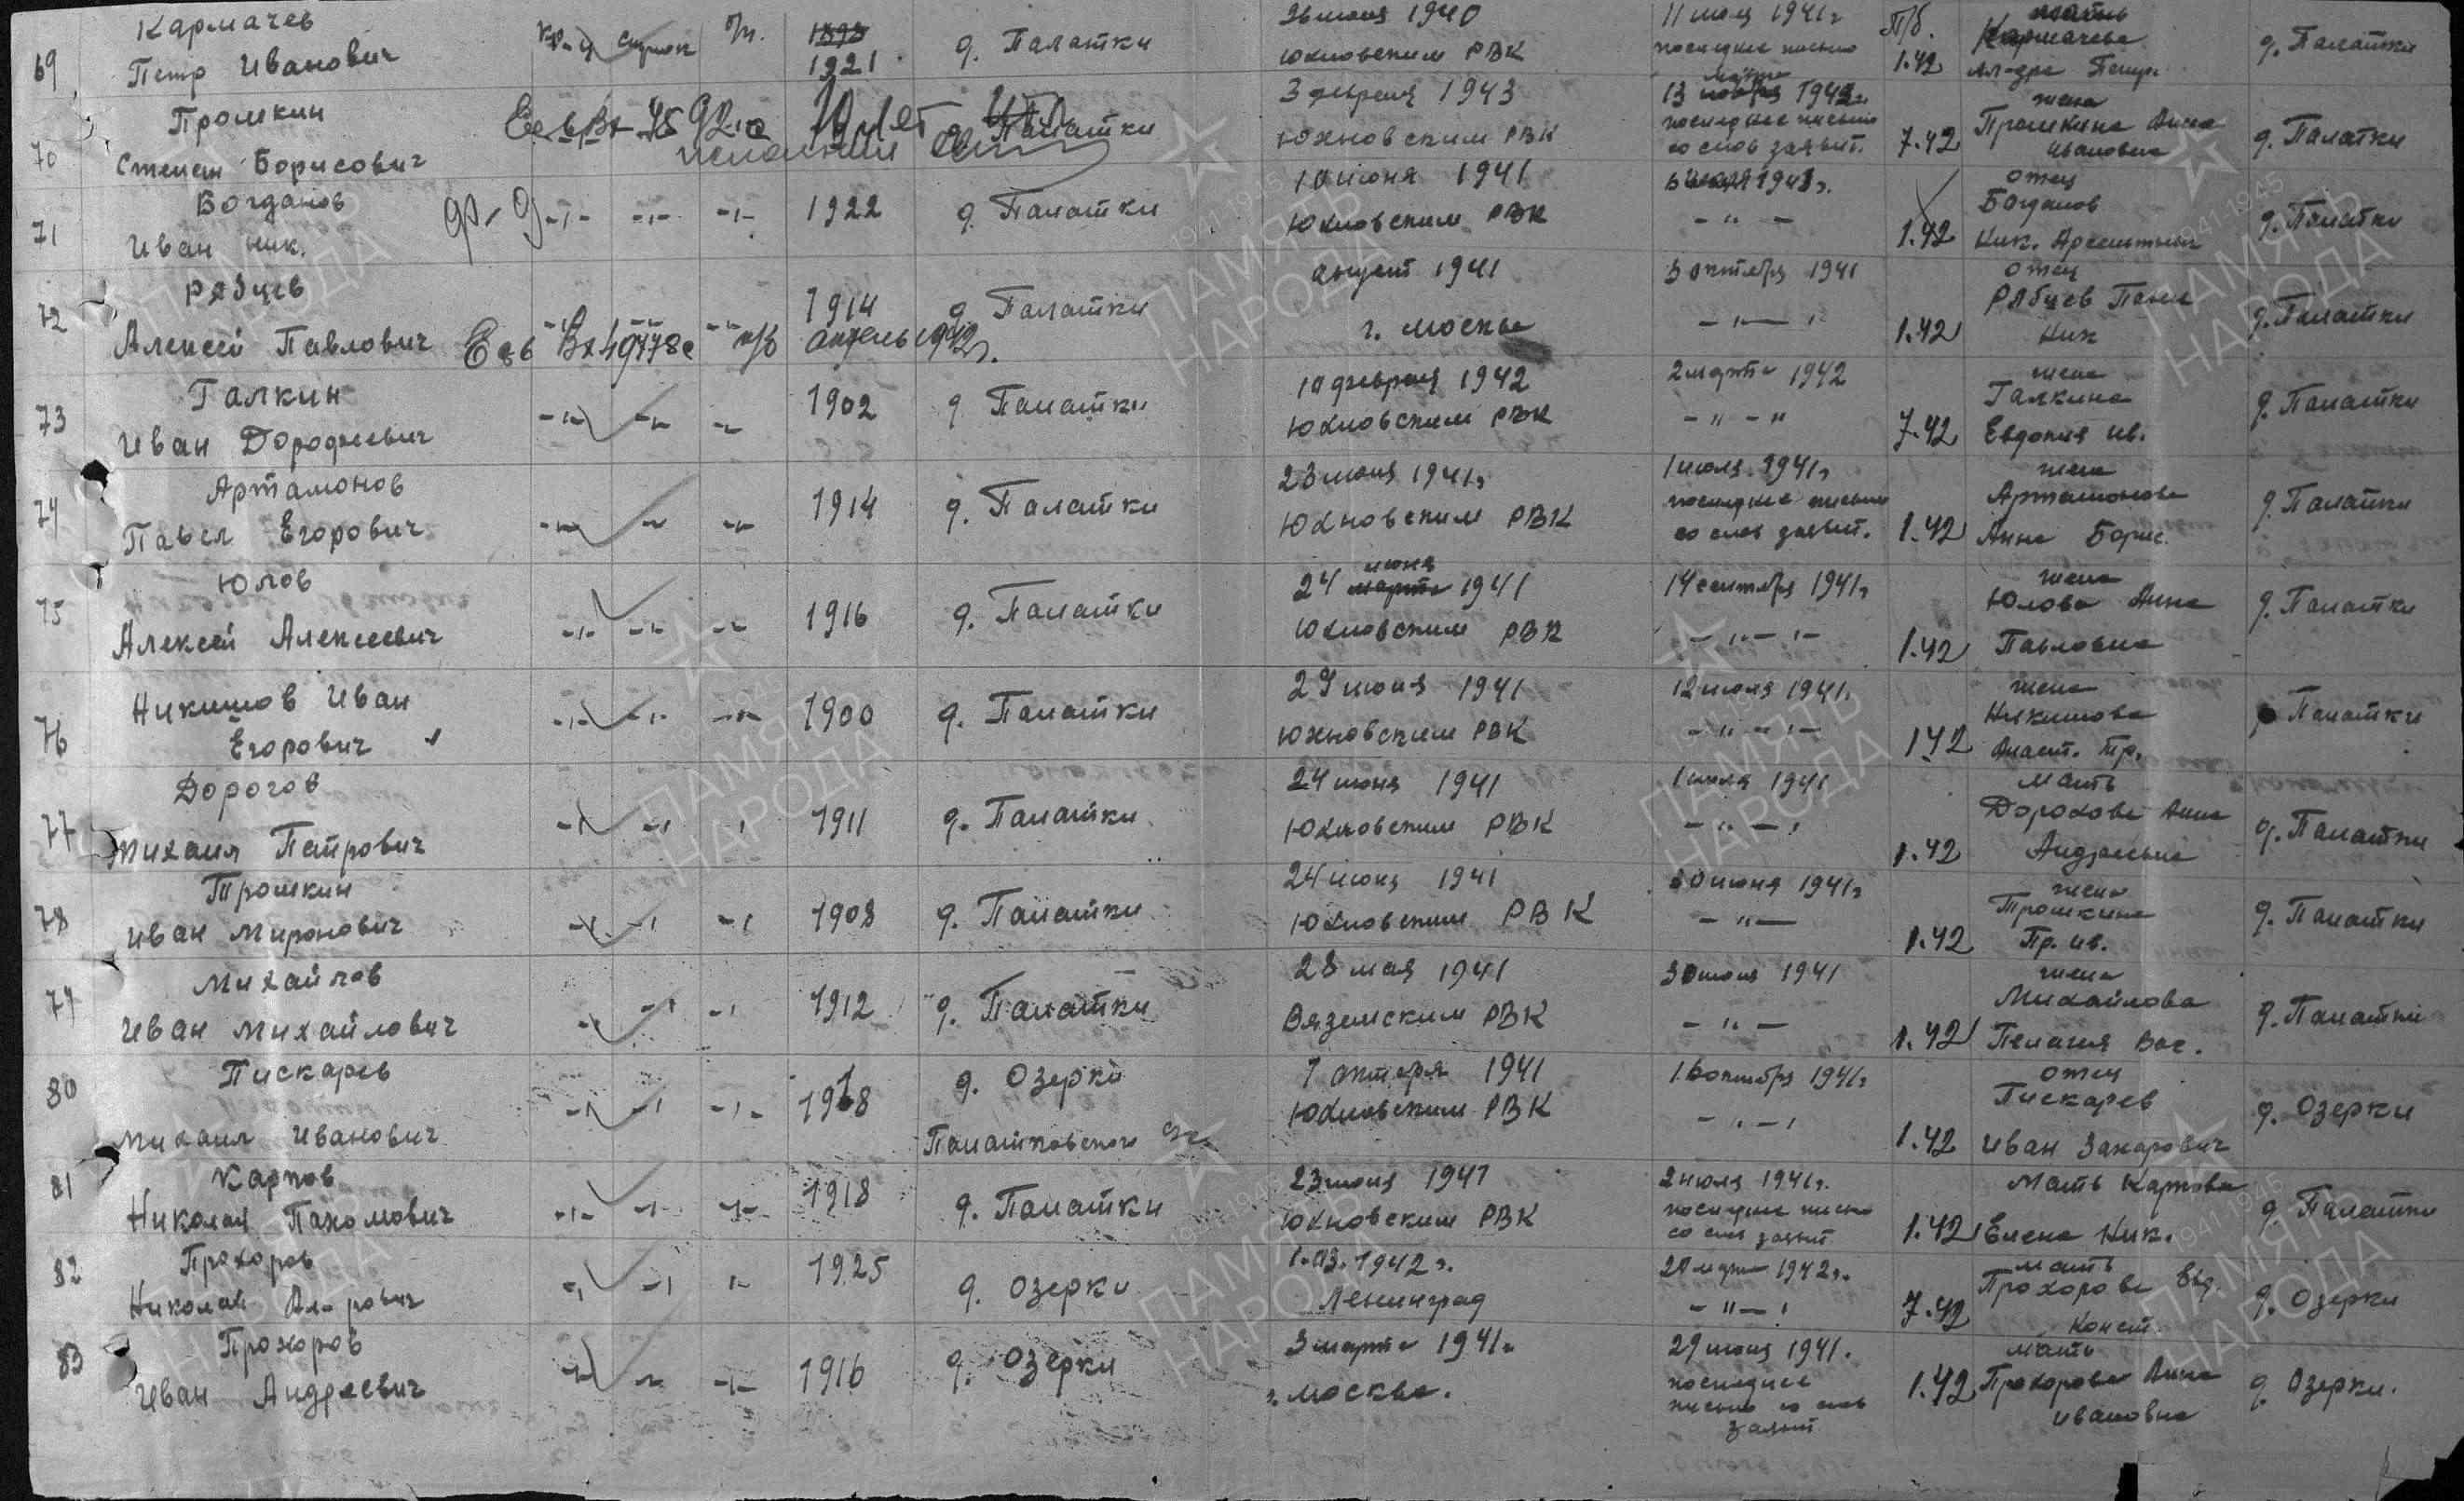 69
Кармачев
Петр Иванович
1921
д. Палатки
1940
Юхновским РВК
1941г
последнее письмо
п/б.
1.42
мать
Кармачева
д. Палатки
70
Степан Борисович
д. Палатки
3 февраля 1943
Юхновским РВК
последнее письмо
со слов заявит.
7.42
жена
Ивановна
д. Палатки
71
Богданов
Иван Ник.
-"- -"- -"-
1922
д. Палатки
10 июня 1941
Юхновским РВК
- " -
1.42
отец
Богданов
Ник.
д. Палатки
72
Рябцев
Алексей Павлович
1914
апрель 1942г.
д. Палатки
август 1941
г. Москва
октября 1941
1.42
отец
Рябцев
Ник
д. Палатки
73
Галкин
Иван Дорофеевич
1902
д. Палатки
10 февраля 1942
Юхновским РВК
2 марта 1942
- " - "
7.42
жена
Галкина
Евдокия Ив.
д. Палатки
74
Артамонов
Павел Егорович
1914
д. Палатки
23 июня 1941г
Юхновским РВК
1 июля 1941г
последнее письмо
со слов заявит.
1.42
жена
Артамонова
Анна Борис.
д. Палатки
75
Юлов
Алексей Алексеевич
1916
д. Палатки
июня
24 марта 1941
Юхновским РВК
14 сентября 1941г
- " - " -
1.42
жена
Юлова Анна
Павловна
д. Палатки
76
Никишов Иван
Егорович
1900
д. Палатки
29 июня 1941
Юхновским РВК
12 июля 1941г
- " - " -
1.42
жена
Никишова
Анаст. Тр.
Палатки
77
Дорогов
Михаил Петрович
1911
д. Палатки
24 июня 1941
Юхновским РВК
1 июля 1941
1.42
мать
Дорохова Анна
Андреевна
д. Палатки
78
Трошкин
Иван Миронович
1908
д. Палатки
24 июня 1941
Юхновским РВК
30 июня 1941г
- " -
1.42
жена
Трошкина
Пр. Ив.
д. Палатки
79
Михайлов
Иван Михайлович
1912
д. Палатки
28 мая 1941
Вяземским РВК
30 июня 1941
- " -
1.42
жена
Михайлова
Пелагия Вас.
д. Палатки
80
Пискарев
Михаил Иванович
1918
д. Озерки
Палатковского с/с
октября 1941
Юхновским РВК
16 октября 1941г
1.42
отец
Пискарев
Иван Захарович
д. Озерки
81
Карпов
Николай Пахомович
1918
д. Палатки
23 июня 1941
Юхновским РВК
2 июля 1941г.
последнее письмо
со слов заявит
1.42
мать Карпова
Елена Ник.
д. Палатки
82
Прохоров
Николай
1925
д. Озерки
1.03.1942г.
Ленинград
марта 1942г.
7.42
мать
Прохорова Евд.
Конст.
д. Озерки
83
Прохоров
Иван Андреевич
1916
д. Озерки
3 марта 1941г
г. Москва.
29 июня 1941.
последнее
письмо со слов
заявит
1.42
мать
Прохорова Анна
Ивановна
д. Озерки.
1941 1945
ПАМЯТЬ
НАРОДА